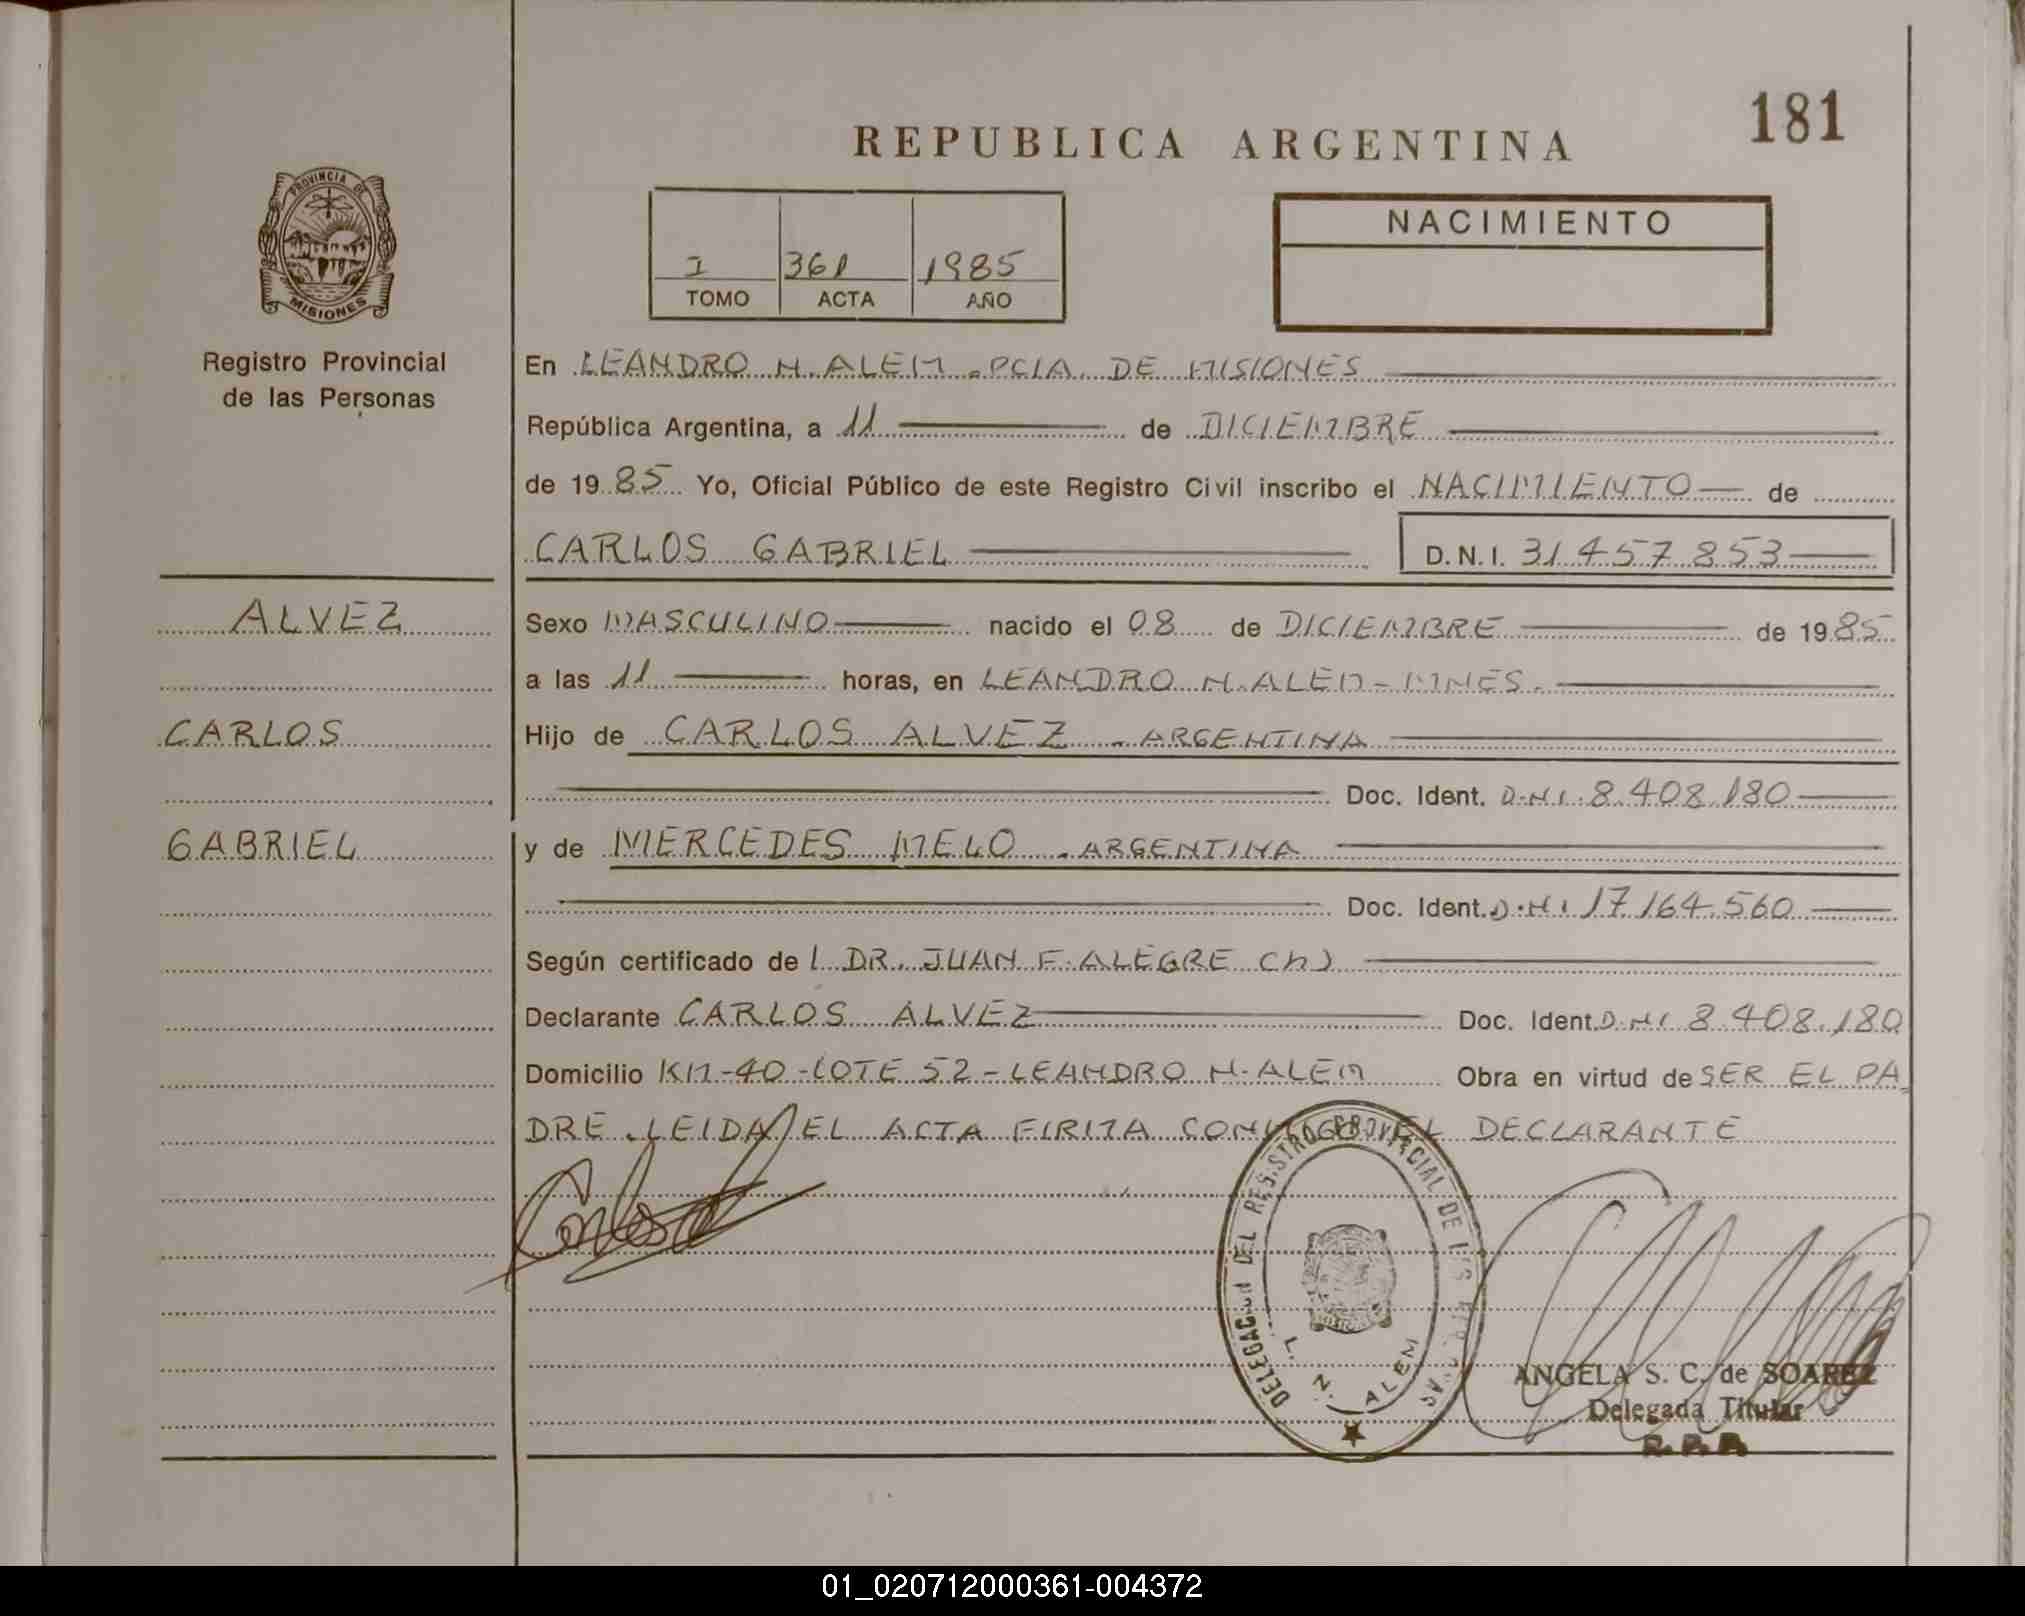 181
REPUBLICA ARGENTINA
PROVINCIA DE
MISIONES
Registro Provincial
de las Personas
I 361 1985
TOMO ACTA AÑO
NACIMIENTO
En LEANDRO N. ALEM - PCIA. DE MISIONES
República Argentina, a 11 de DICIEMBRE
de 1985 Yo, Oficial Público de este Registro Civil inscribo el NACIMIENTO de
CARLOS GABRIEL D.N.I. 31.457.853
ALVEZ
CARLOS
GABRIEL
Sexo MASCULINO nacido el 08 de DICIEMBRE de 1985
a las 11 horas, en LEANDRO N. ALEM - MNES.
Hijo de CARLOS ALVEZ - ARGENTINA
Doc. Ident. D.N.I. 8.408.180
y de MERCEDES MELO - ARGENTINA
Doc. Ident. D.N.I 17.164.560
Según certificado de DR. JUAN F. ALEGRE (h)
Declarante CARLOS ALVEZ Doc. Ident. D.N.I 8.408.180
Domicilio KM-40-LOTE 52-LEANDRO N. ALEM Obra en virtud de SER EL PA
DRE. LEIDA EL ACTA FIRMA CONMIGO EL DECLARANTE
DELEGACION DEL REGISTRO PROVINCIAL DE LAS PERSONAS
L. N. ALEM
ANGELA S. C. de SOAREZ
Delegada Titular
01_020712000361-004372